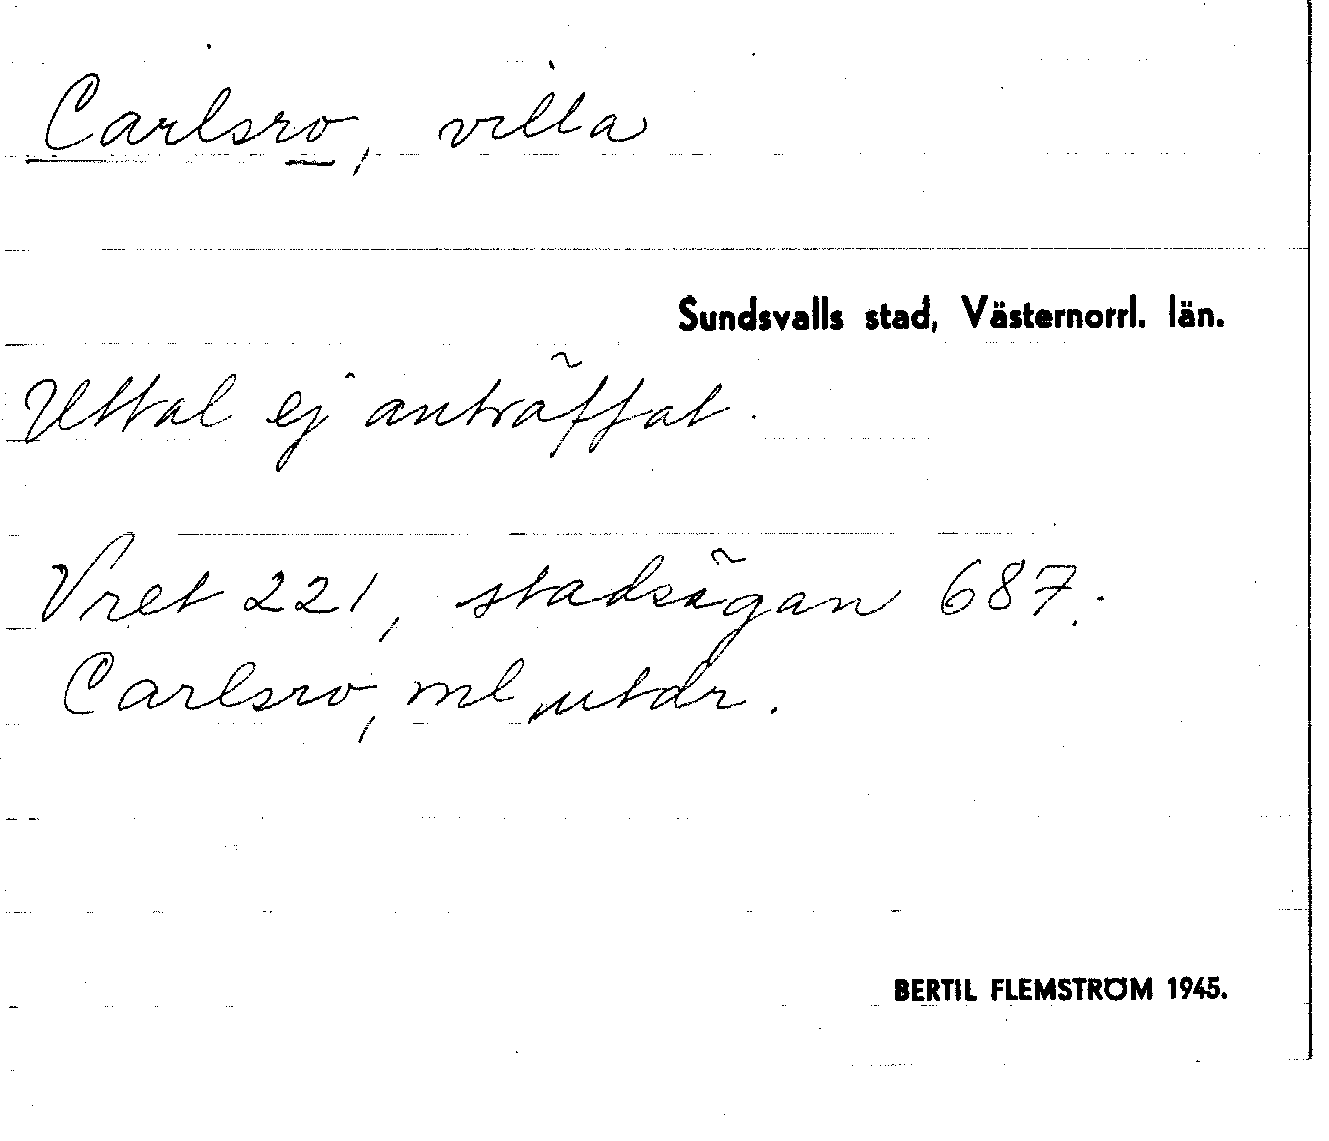 Carlsro, villa
Sundsvalls stad, Västernorrl. län.
Uttal ej anträffat.
Vret 221, stadsägan 687.
Carlsro, ml utdr.
BERTIL FLEMSTRÖM 1945.